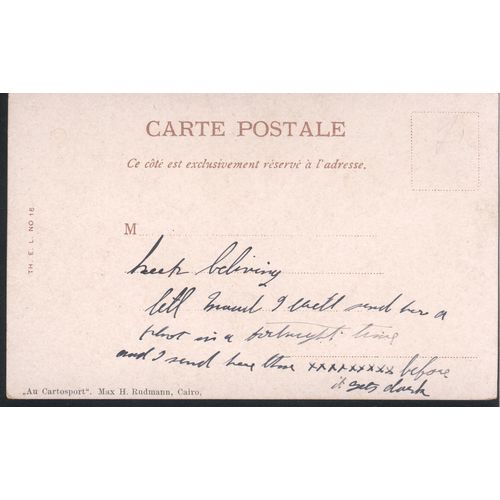 CARTE POSTALE
Ce côté est exclusivement réservé à l'adresse.
M
TH. E. L. NO 16
keep beliving
tell Maud I will send her a
in a fortnight time
and I send here xxxxxxxxx before
it gets dark
„Au Cartosport“. Max H. Rudmann, Cairo,